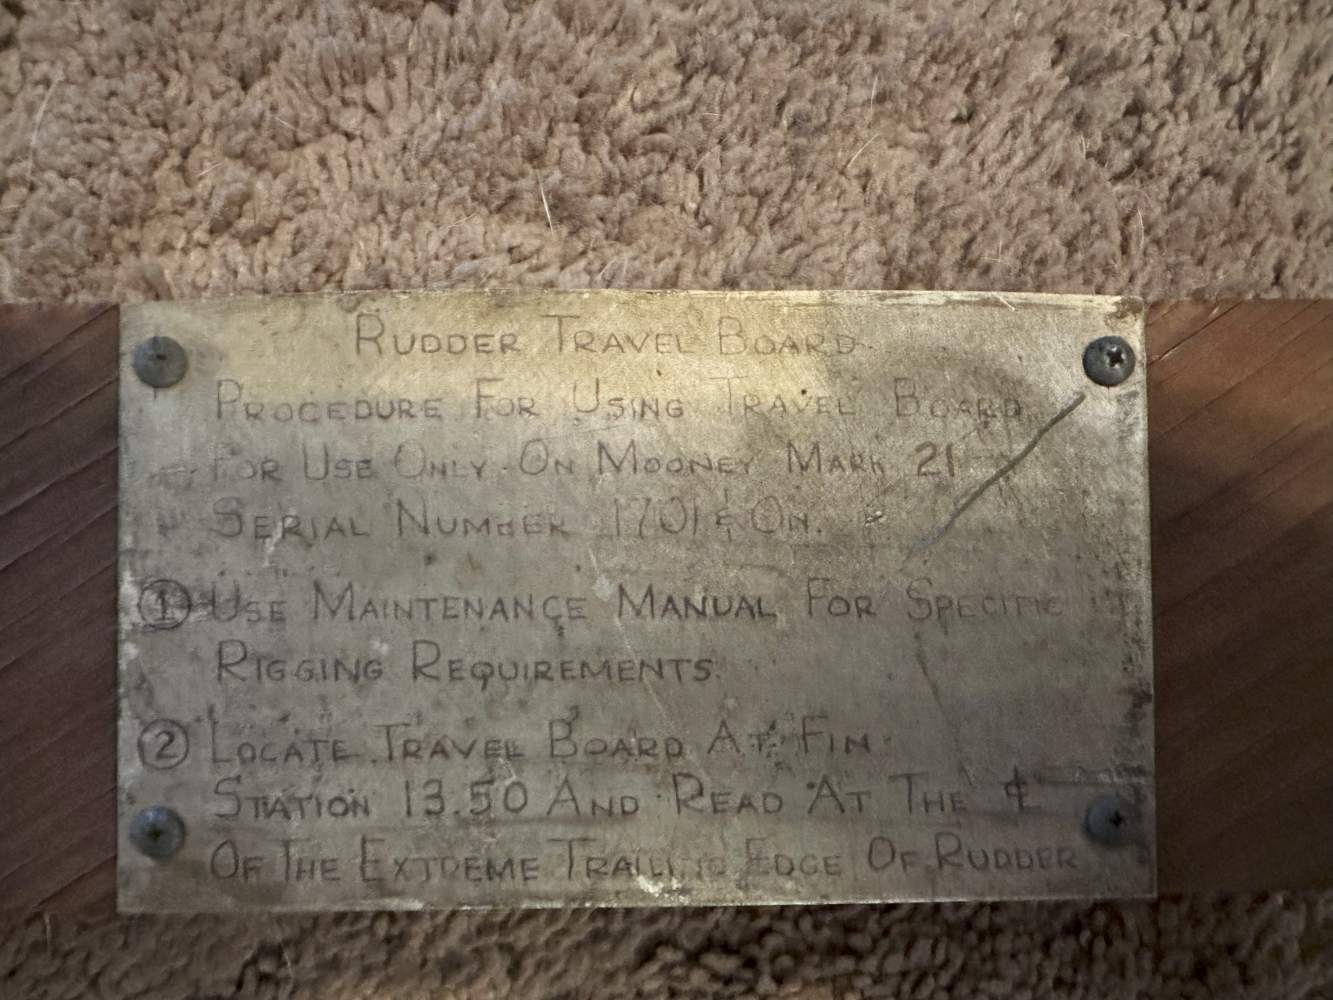 RUDDER TRAVEL BOARD
PROCEDURE FOR USING TRAVEL BOARD
FOR USE ONLY ON MOONEY MARK 21
SERIAL NUMBER 1701 & ON.
① USE MAINTENANCE MANUAL FOR SPECIFIC
RIGGING REQUIREMENTS.
② LOCATE TRAVEL BOARD AT FIN
STATION 13.50 AND READ AT THE ℄
OF THE EXTREME TRAILING EDGE OF RUDDER